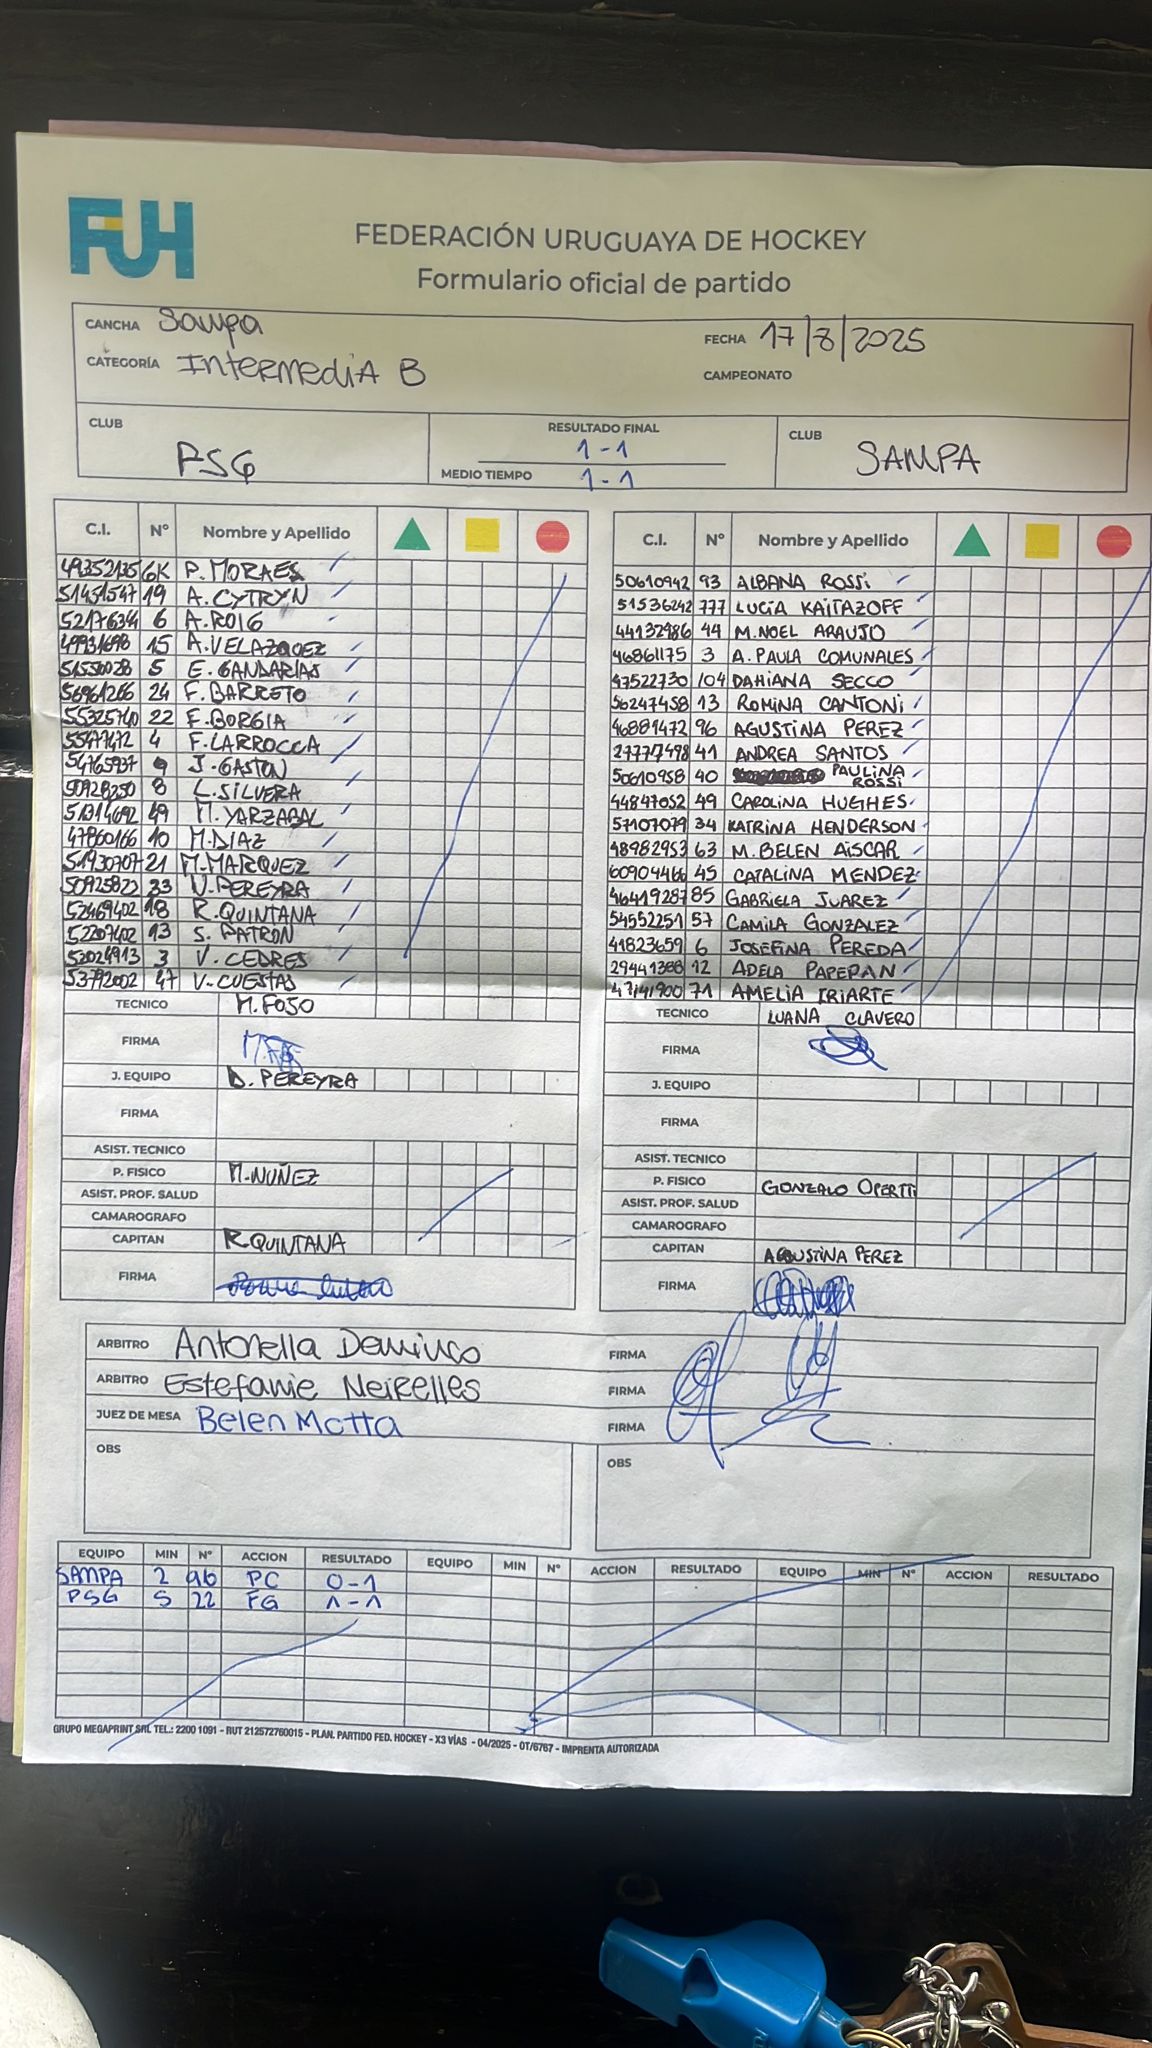 FUH
FEDERACIÓN URUGUAYA DE HOCKEY
Formulario oficial de partido
CANCHA Sampa
FECHA 17/8/2025
CATEGORÍA Intermedia B
CAMPEONATO
CLUB PSG
RESULTADO FINAL 1-1
MEDIO TIEMPO 1-1
CLUB SAMPA
C.I. Nº Nombre y Apellido
49352135 GK P. MORAES
51451547 19 A. CYTRYN
52176344 6 A. ROIG
15 A. VELAZQUEZ
5 E. GANDARIAS
56961266 24 F. BARRETO
22 F. BORGIA
4 F. LARROCCA
54765937 9 J. GASTON
50928250 8 L. SILVERA
51314692 49 M. YARZABAL
47860166 10 M. DIAZ
51930707 21 M. MARQUEZ
50925822 33 N. PEREYRA
52469402 18 R. QUINTANA
52207402 13 S. PATRON
52024913 3 V. CEDRES
53792002 47 V. CUESTAS
TECNICO M. FOSO
FIRMA
J. EQUIPO D. PEREYRA
FIRMA
ASIST. TECNICO
P. FISICO M. NUÑEZ
ASIST. PROF. SALUD
CAMAROGRAFO
CAPITAN R QUINTANA
FIRMA
C.I. Nº Nombre y Apellido
50610942 93 ALBANA ROSSI
51536242 777 LUCIA KAITAZOFF
44132986 44 M. NOEL ARAUJO
46861175 3 A. PAULA COMUNALES
47522730 104 DAHIANA SECCO
56247458 13 ROMINA CANTONI
46881472 96 AGUSTINA PEREZ
27777498 41 ANDREA SANTOS
50610958 40 PAULINA ROSSI
44847052 49 CAROLINA HUGHES
57107079 34 KATRINA HENDERSON
48982953 63 M. BELEN AISCAR
60904466 45 CATALINA MENDEZ
46419287 85 GABRIELA JUAREZ
54552251 57 CAMILA GONZALEZ
41823659 6 JOSEFINA PEREDA
29441388 12 ADELA PAPERAN
47141900 71 AMELIA IRIARTE
TECNICO LUANA CLAVERO
FIRMA
J. EQUIPO
FIRMA
ASIST. TECNICO
P. FISICO GONZALO OPERTTI
ASIST. PROF. SALUD
CAMAROGRAFO
CAPITAN AGUSTINA PEREZ
FIRMA
ARBITRO Antonella Deminco FIRMA
ARBITRO Estefanie Neirelles FIRMA
JUEZ DE MESA Belen Motta FIRMA
OBS
OBS
EQUIPO MIN Nº ACCION RESULTADO EQUIPO MIN Nº ACCION RESULTADO EQUIPO MIN Nº ACCION RESULTADO
SAMPA 2 96 PC 0-1
PSG 5 22 FG 1-1
GRUPO MEGAPRINT SRL TEL.: 2200 1091 - RUT 212572760015 - PLAN. PARTIDO FED. HOCKEY - X3 VÍAS - 04/2025 - OT/6767 - IMPRENTA AUTORIZADA